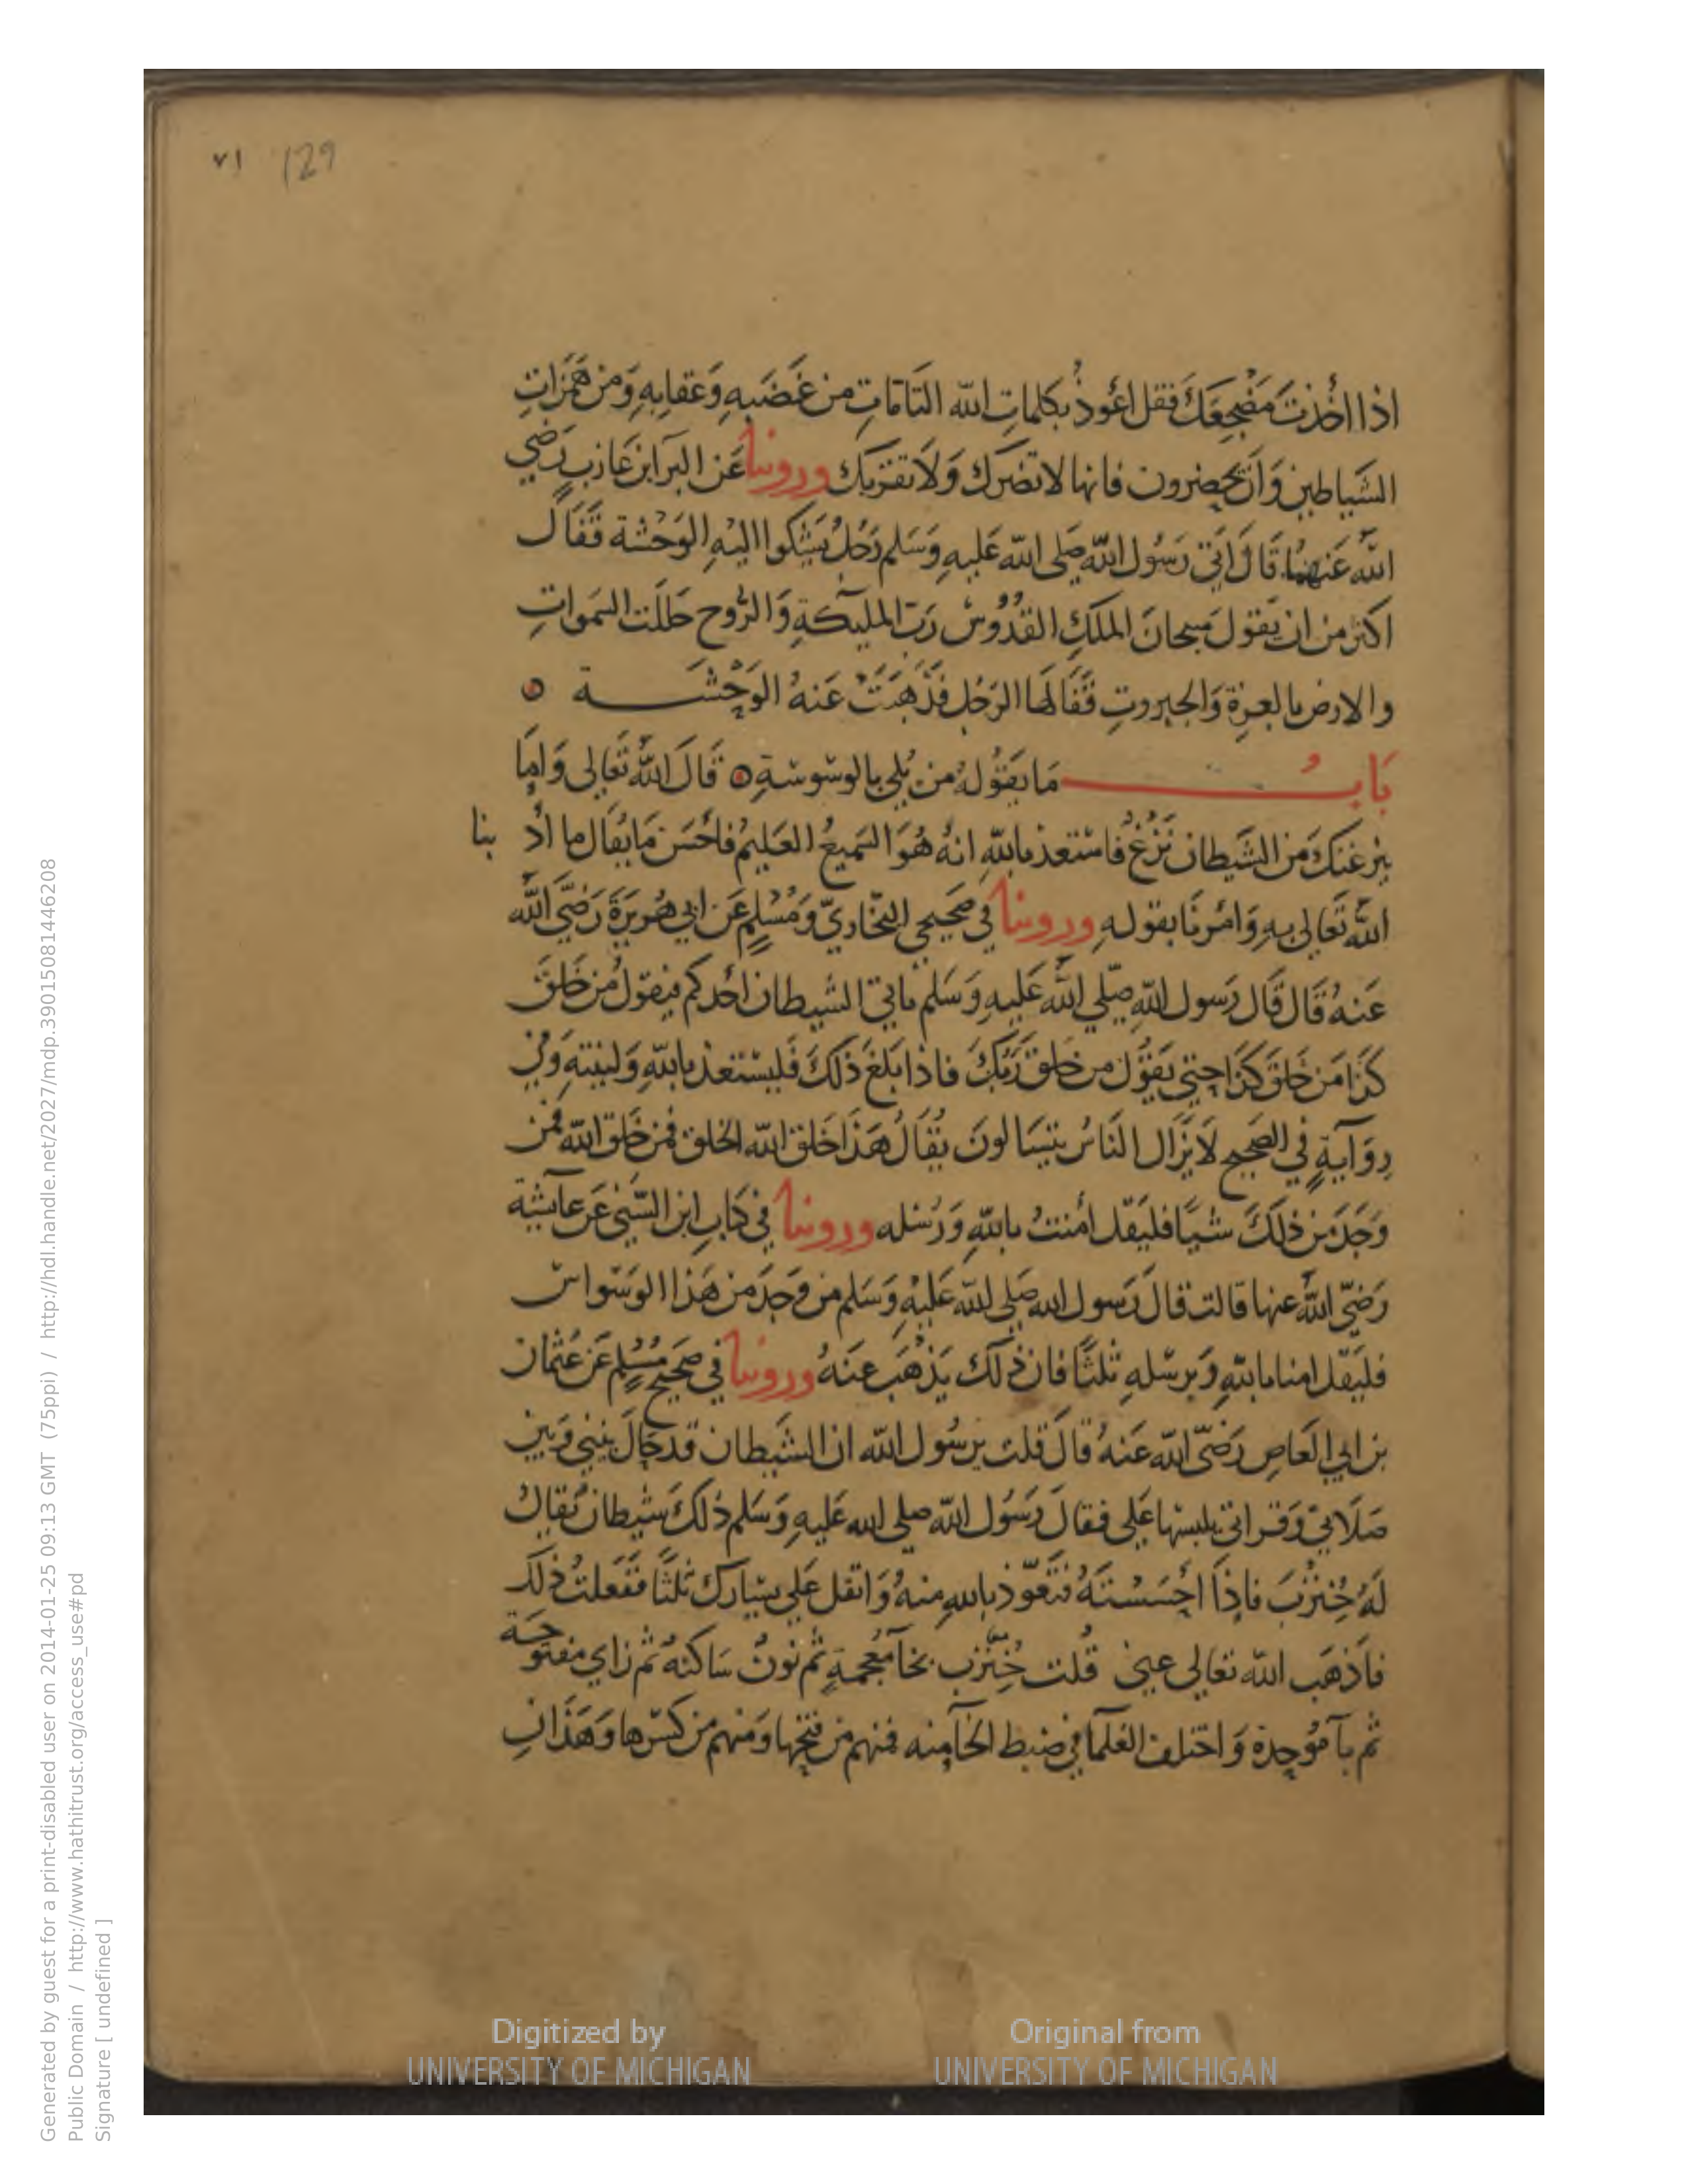 ٧١ 129
اذا اخُذتَ مَضْجَعَكَ فَقل اعُوذُ بكلماتِ الله التَامَاتِ من غَضَبِهِ وَعقابِهِ وَمن هَمزَاتِ
الشَياطين وَان يَحضرون فانها لا تضرك وَلَا تقربك وروينا عَن البرآ ابن عَازبٍ رَضي
اللهُ عَنهُما قَالَ اتَى رَسُول اللهِ صَلى الله عَليهِ وَسَلم رَجُلٌ يَشكوا اليْهِ الوَحْشة فَقَالَ
اكثر من ان يَقول سبحانَ الملَكِ القُدُّوسُ رَبّ المليكةِ وَالرُّوح جَللَت السَموَاتِ
والارض بالعزةِ وَالجبروتِ فَقَالَهَا الرَجُل فَذَهبَتْ عَنهُ الوَحْشَة
بَابُ مَا يَقوُلهُ من بُلي بالوسْوسَةِ قَالَ اللهُ تَعَالى وَامَا
ينزغنكَ من الشَيطان نَزْغٌ فاسْتعذ باللهِ انهُ هُوَ السَميعُ العَليمُ فاحْسَن مَا يُقَال ما ادْ بنا
اللهُ تَعَالى بهِ وَامَرنَا بقولهِ وروينا في صَحيحي البخَاريّ وَمُسْلِمٍ عَن ابي هُريرَةَ رَضيَ الله
عَنهُ قَالَ قَال رَسول اللهِ صَلي اللهُ عَليهِ وَسَلم ياتي الشيطان احُدكم فيقولُ مَن خَلقَ
كذَا مَن خَلقَ كذَا حتي يَقوُل من خلق رَبّكَ فاذا بَلغَ ذلكَ فَليسْتعذ باللهِ وَلينتهِ وَفي
رِوَايةٍ في الصَحيح لَا يَزَال النَاسُ يتَسَالونَ يُقَالُ هَذَا خَلقَ الله الخلق فمن خَلق الله فمَن
وَجَدَ من ذلكَ شيًا فليَقل امَنتُ باللهِ وَرُسُله وروينا في كتاب ابن السّني عَن عَآيشة
رَضيَ اللهُ عنها قالت قالَ رَسول الله صَلى الله عَليْهِ وَسَلم من وَجدَ من هَذا الوسَوَاس
فليَقل امنا باللهِ وَبرسلهِ ثلثًا فان ذلكَ يَذْهَب عنهُ وروينا في صَحيح مُسْلمٍ عَن عُثمان
بن ابي العَاص رَضيَ الله عَنهُ قالَ قلت يرسُول الله ان الشَيطان قد حَالَ بيني وَبين
صَلَاتي وَقراتي يلبسها عَلي فقالَ رَسُول اللهِ صلى الله عَليهِ وَسَلم ذلكَ شيطانٌ يُقالُ
لهُ خِنزبَ فاذَا احسَسْتَهُ فتَعَوّذ بالله منهُ وَاتفل عَلي يسَارك ثلثًا فَفَعلتُ ذلكَ
فاذهَب الله تعَالي عني قُلت خِنزب بخَآ مُعجمةٍ ثم نون سَاكنه ثم زاي مفتوحَة
ثم بآ مُوَحدة وَاختلفَ العُلمآ في ضبط الخَآ منه فمنهم من فتحها وَمنهم من كسَرها وَهَذَانِ
Digitized by
UNIVERSITY OF MICHIGAN
Original from
UNIVERSITY OF MICHIGAN
Generated by guest for a print-disabled user on 2014-01-25 09:13 GMT (75ppi) / http://hdl.handle.net/2027/mdp.39015081446208
Public Domain / http://www.hathitrust.org/access_use#pd
Signature [ undefined ]